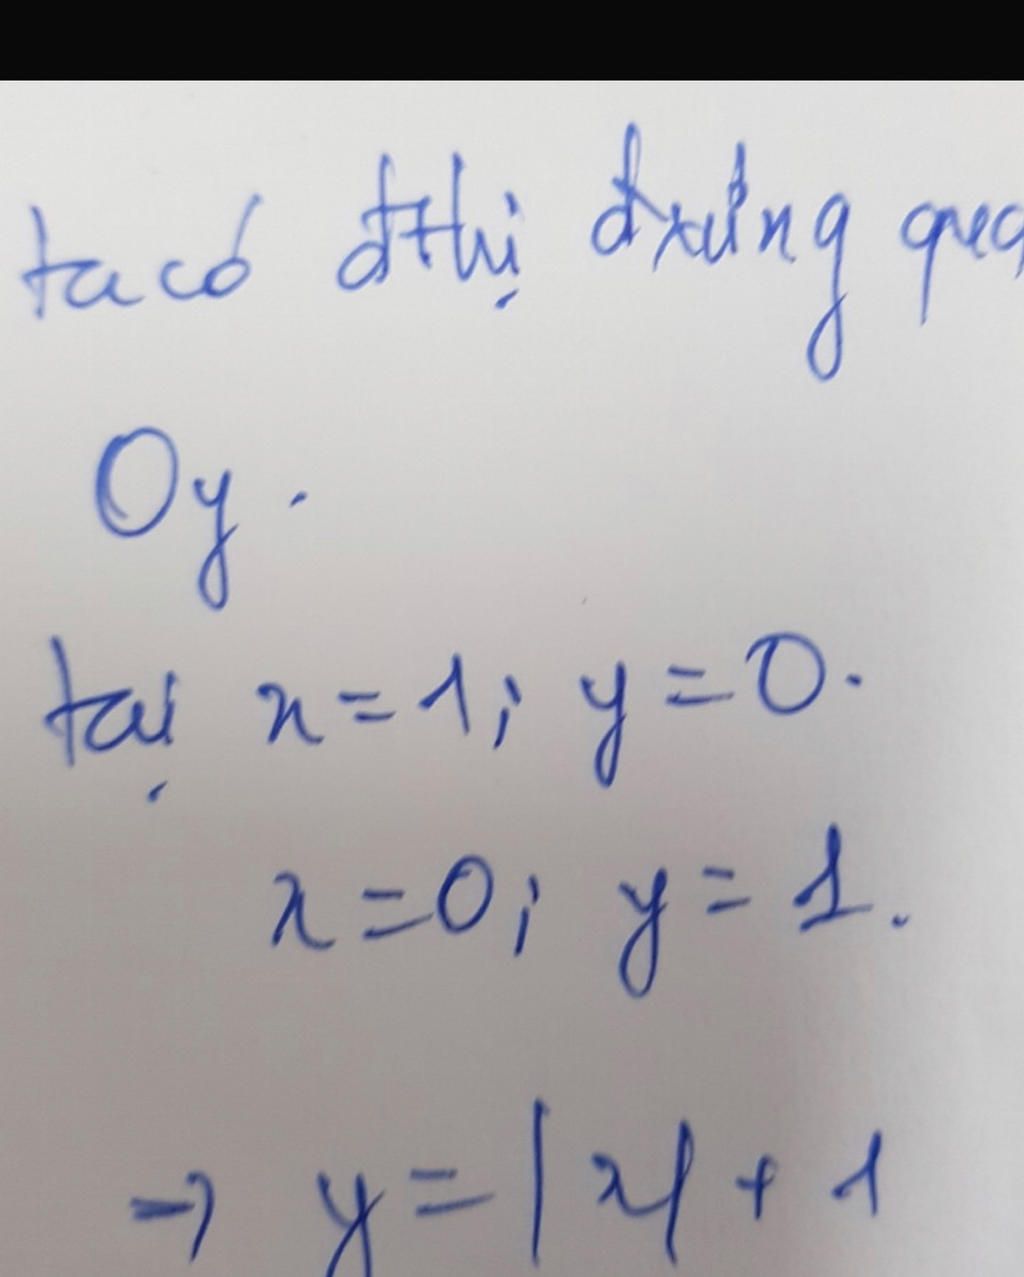 ta có đthị đxứng qua
Oy.
tại x=1; y=0.
x=0; y=1.
→ y=|x|+1